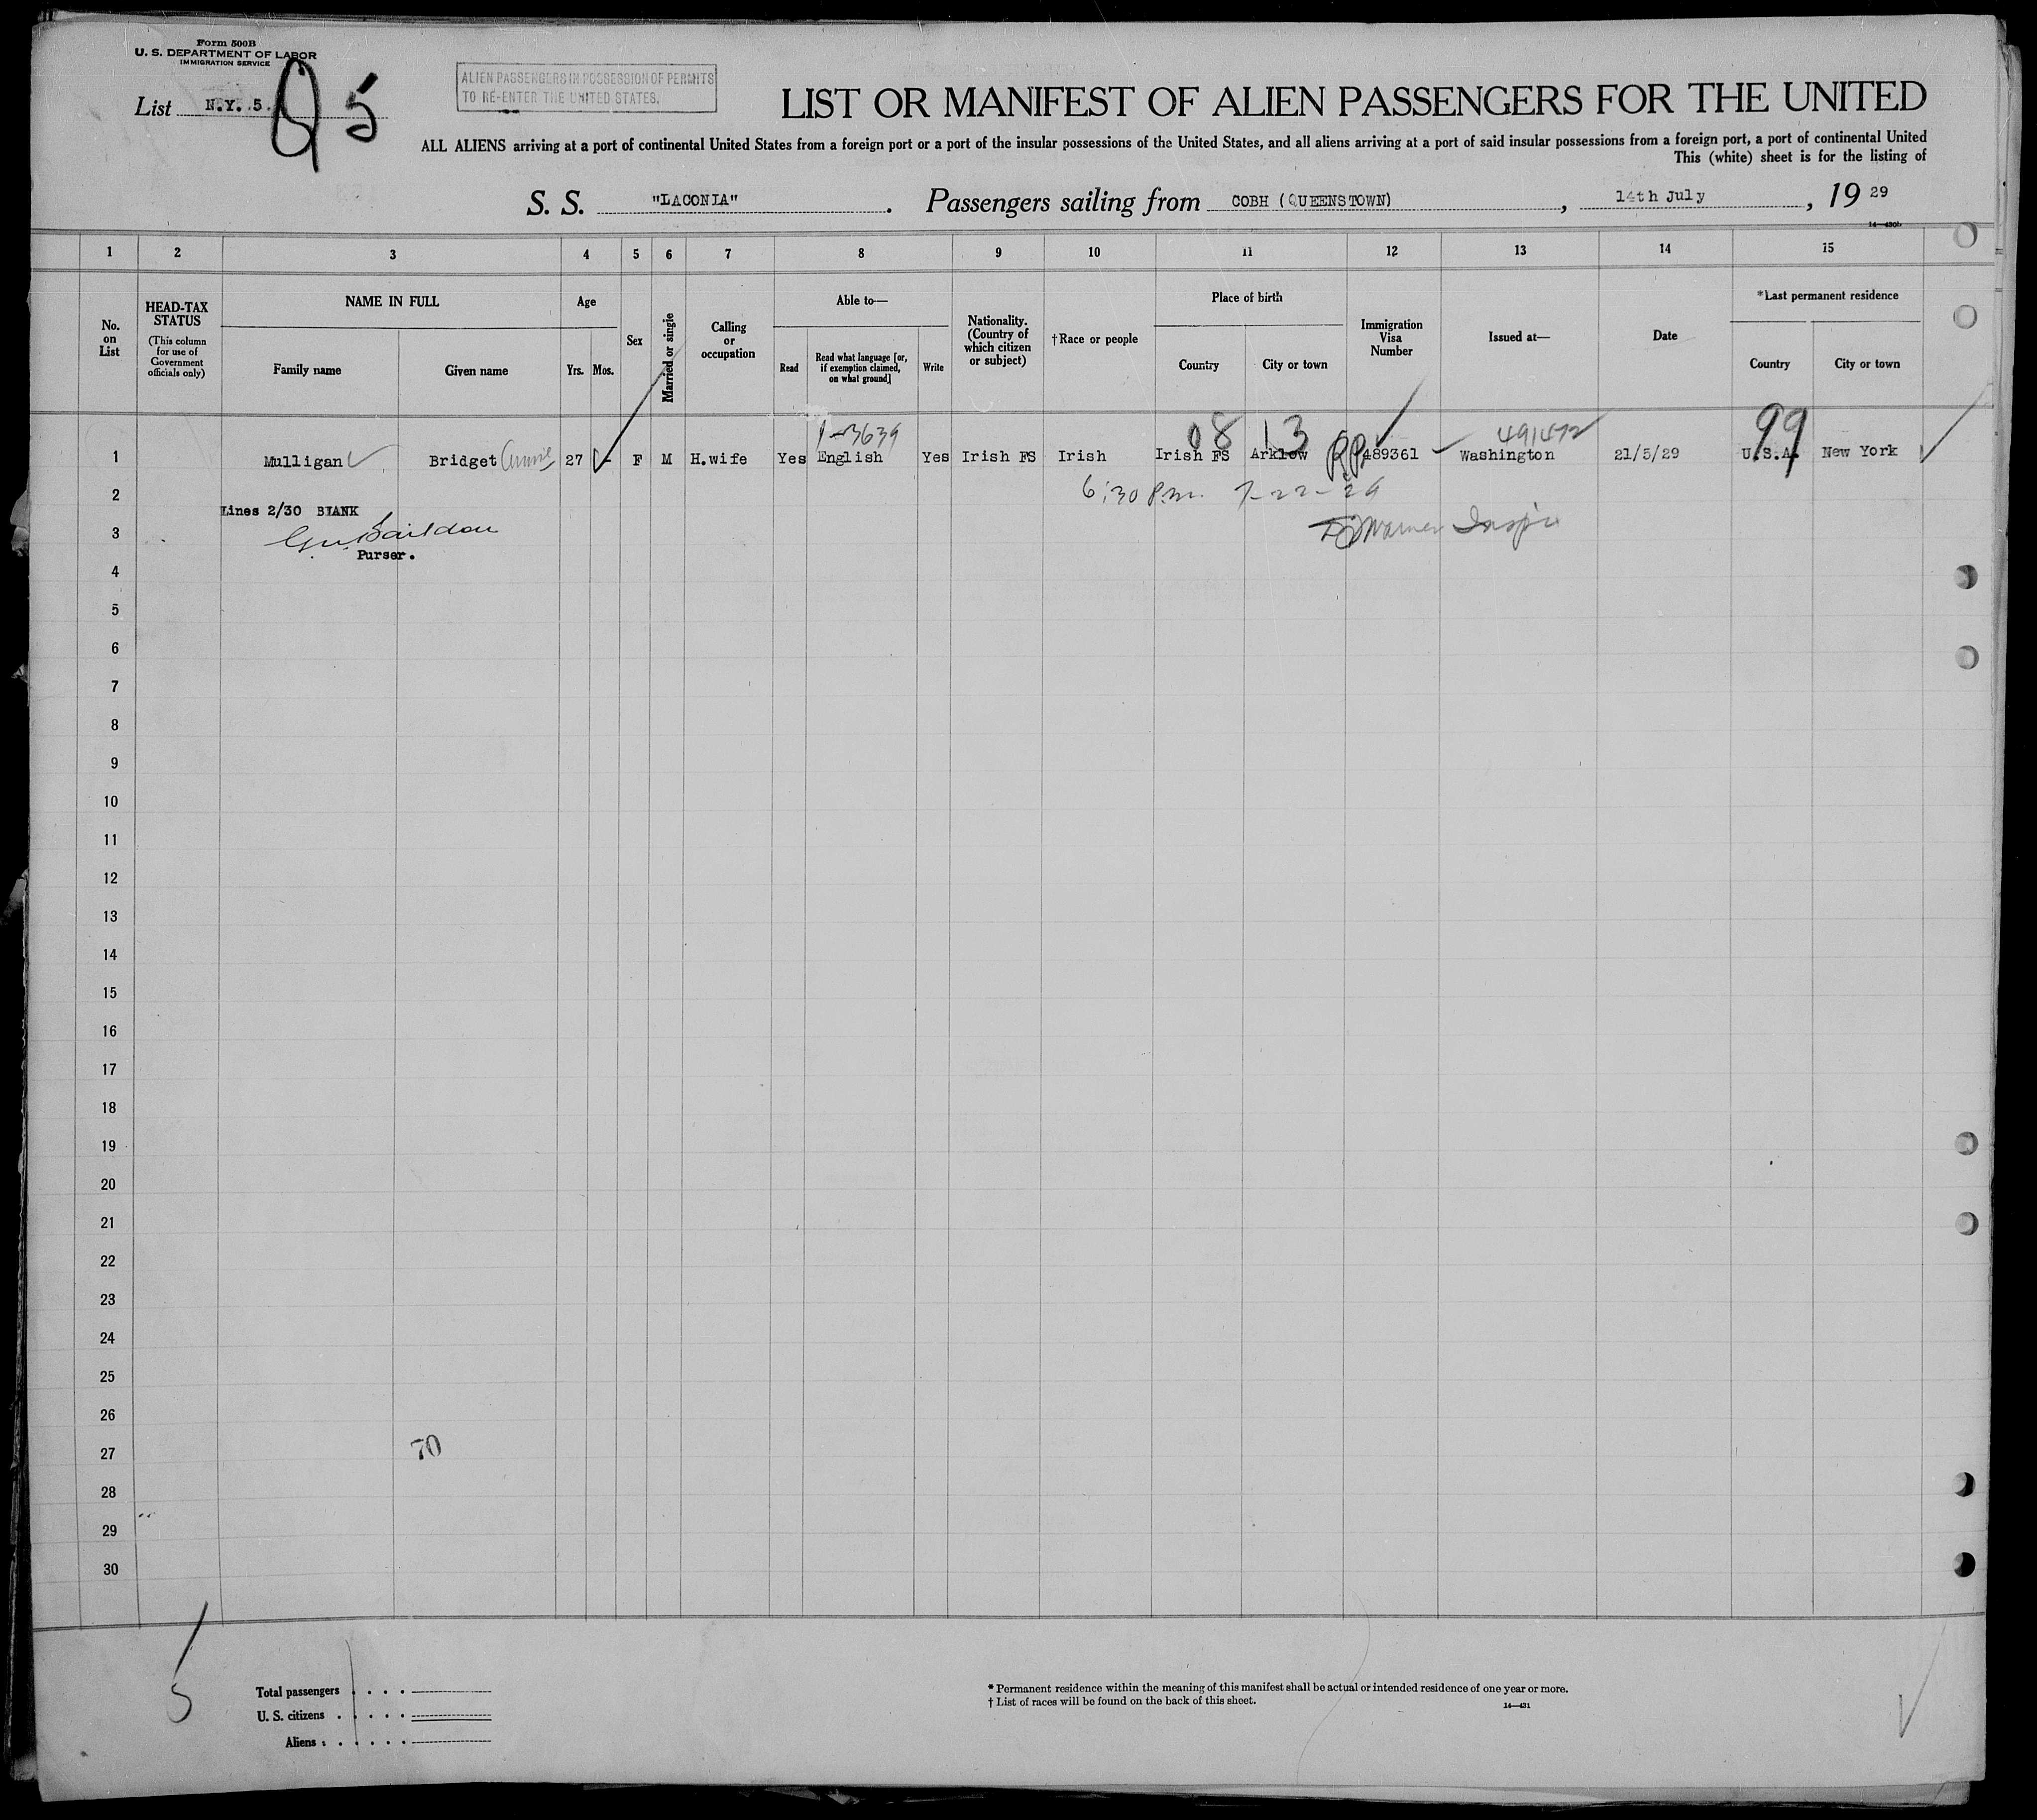 Form 500B
U. S. DEPARTMENT OF LABOR
IMMIGRATION SERVICE
List N.Y. 5.
5
ALIEN PASSENGERS IN POSSESSION OF PERMITS
TO RE-ENTER THE UNITED STATES.
LIST OR MANIFEST OF ALIEN PASSENGERS FOR THE UNITED
ALL ALIENS arriving at a port of continental United States from a foreign port or a port of the insular possessions of the United States, and all aliens arriving at a port of said insular possessions from a foreign port, a port of continental United
This (white) sheet is for the listing of
S. S. "LACONIA". Passengers sailing from COBH (QUEENSTOWN), 14th July, 19 29
14—430b
1 2 3 4 5 6 7 8 9 10 11 12 13 14 15
No. on List
HEAD-TAX STATUS
(This column for use of Government officials only)
NAME IN FULL
Family name
Given name
Age
Yrs. Mos.
Sex
Married or single
Calling or occupation
Able to—
Read
Read what language [or, if exemption claimed, on what ground]
Write
Nationality. (Country of which citizen or subject)
†Race or people
Place of birth
Country
City or town
Immigration Visa Number
Issued at—
Date
*Last permanent residence
Country
City or town
1-3639 08 13 491472 99
1 Mulligan Bridget 27 - F M H.wife Yes English Yes Irish FS Irish Irish FS Arklow RP 489361 Washington 21/5/29 U.S.A. New York
2
6:30 P.m. 7-22-29
Lines 2/30 BLANK
3
Warner Inspr
Purser.
4
5
6
7
8
9
10
11
12
13
14
15
16
17
18
19
20
21
22
23
24
25
26
27
70
28
29
30
5
Total passengers
U. S. citizens
Aliens
* Permanent residence within the meaning of this manifest shall be actual or intended residence of one year or more.
† List of races will be found on the back of this sheet.
14—431